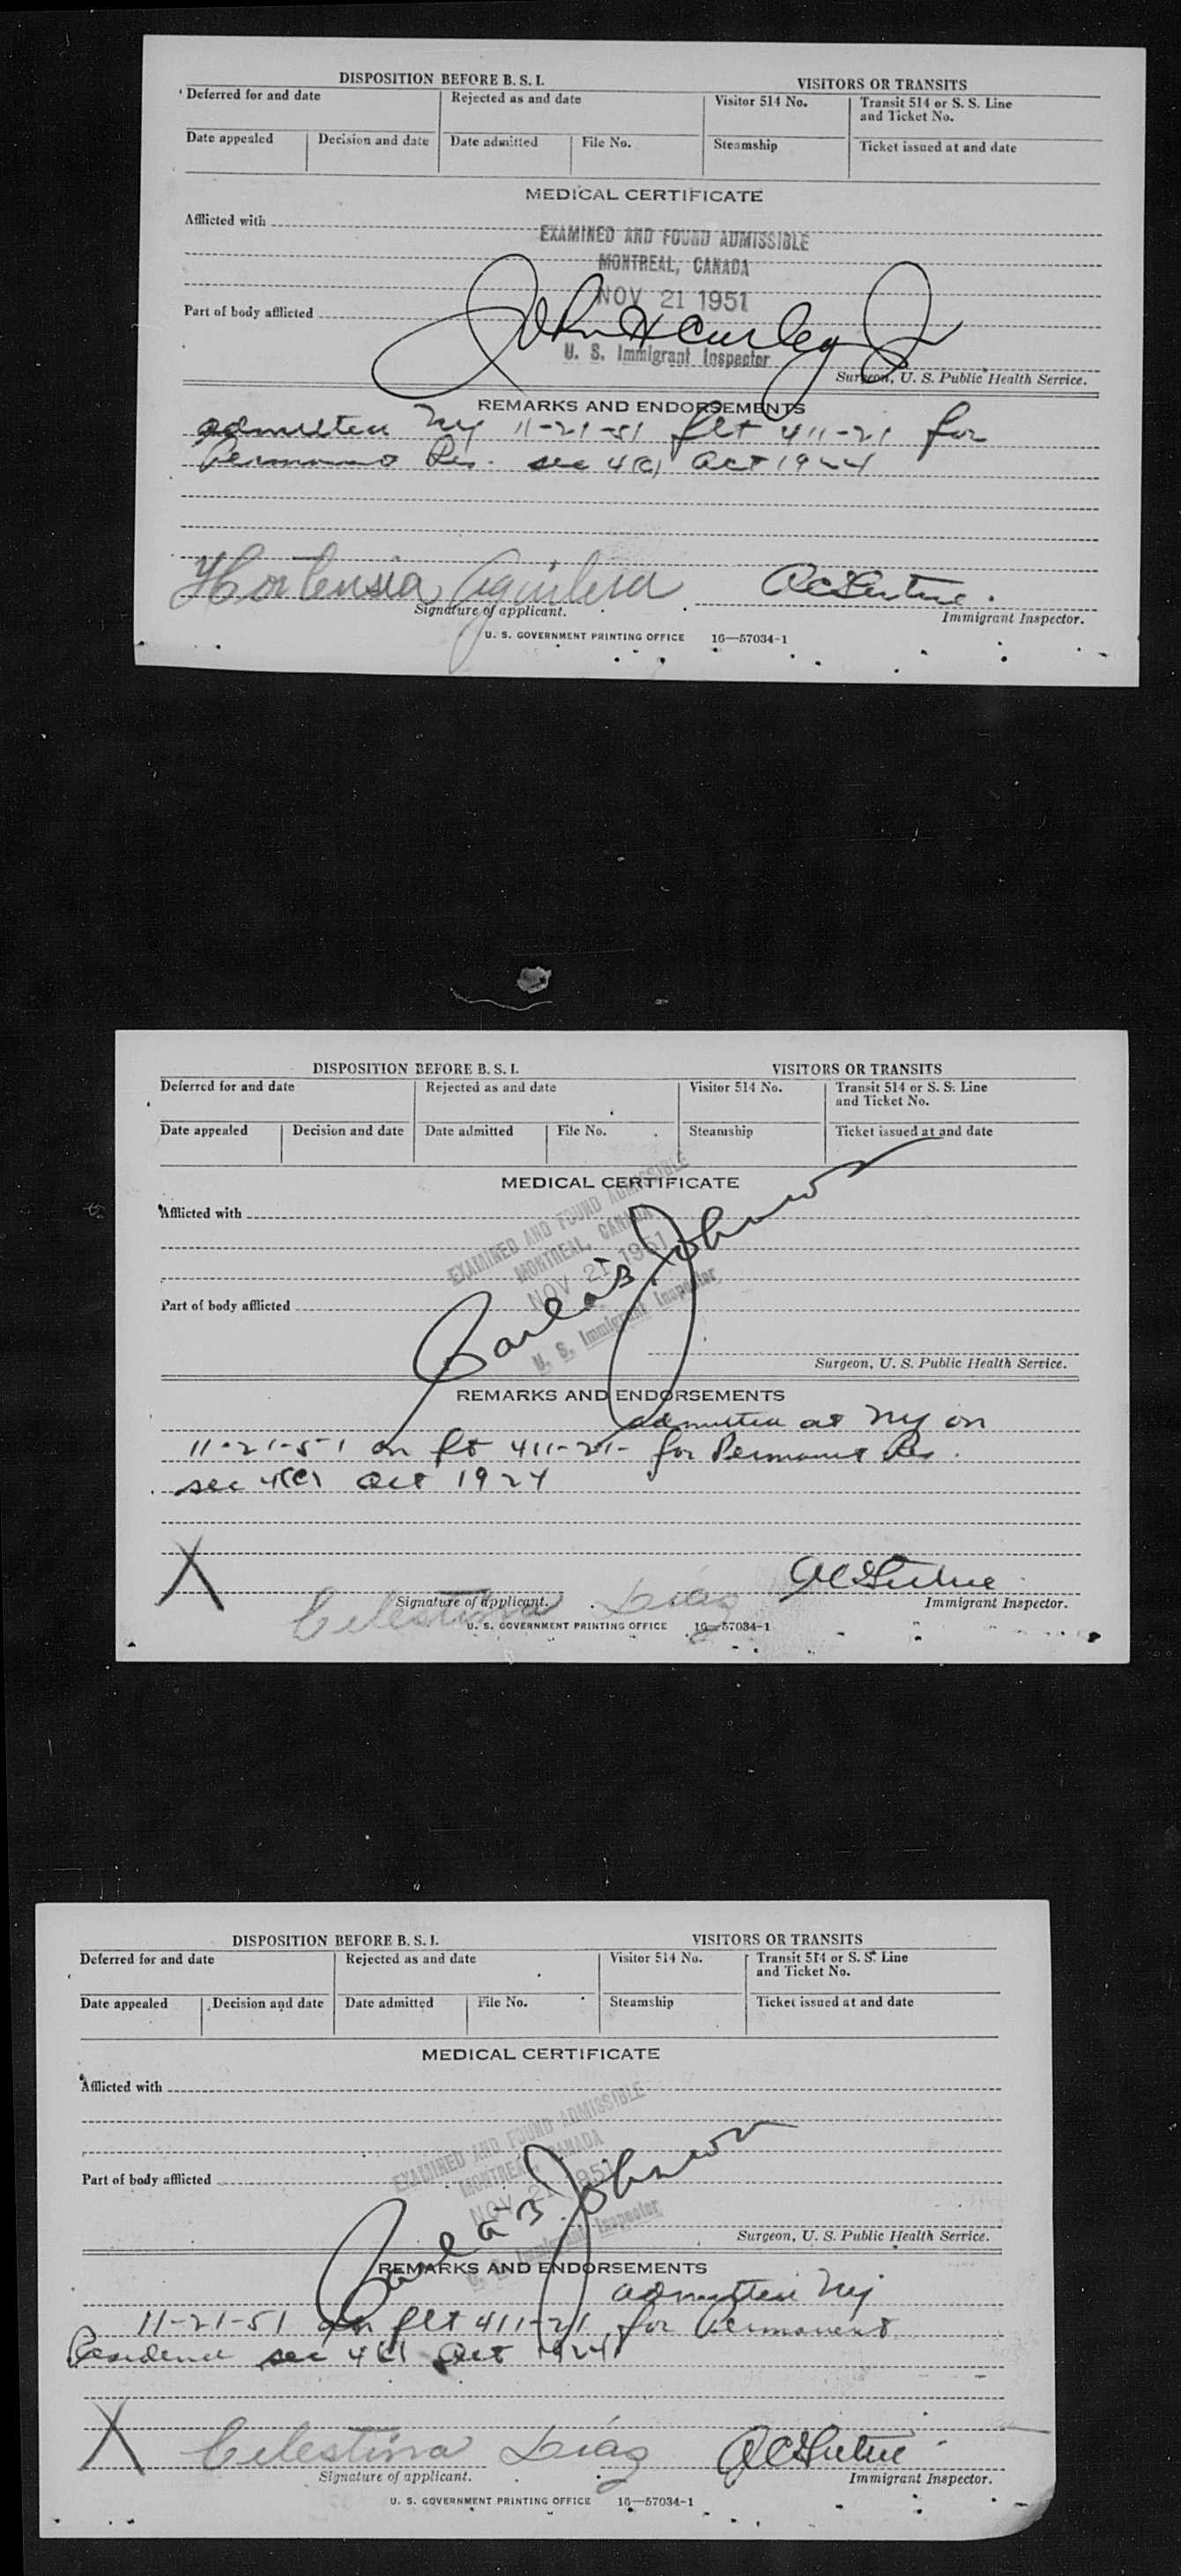 DISPOSITION BEFORE B. S. I.
VISITORS OR TRANSITS
Deferred for and date
Rejected as and date
Visitor 514 No.
Transit 514 or S. S. Line
and Ticket No.
Date appealed
Decision and date
Date admitted
File No.
Steamship
Ticket issued at and date
MEDICAL CERTIFICATE
Afflicted with
EXAMINED AND FOUND ADMISSIBLE
MONTREAL, CANADA
NOV 21 1951
Part of body afflicted
John H Curley Jr
U. S. Immigrant Inspector
Surgeon, U. S. Public Health Service.
REMARKS AND ENDORSEMENTS
admitted NY 11-21-51 flt 411-21 for
Permanent Res. sec 4(c) Act 1924
Hortensia Aguilera
Signature of applicant.
Immigrant Inspector.
U. S. GOVERNMENT PRINTING OFFICE 16—57034-1
DISPOSITION BEFORE B. S. I.
VISITORS OR TRANSITS
Deferred for and date
Rejected as and date
Visitor 514 No.
Transit 514 or S. S. Line
and Ticket No.
Date appealed
Decision and date
Date admitted
File No.
Steamship
Ticket issued at and date
MEDICAL CERTIFICATE
Afflicted with
EXAMINED AND FOUND ADMISSIBLE
MONTREAL, CANADA
NOV 21 1951
U. S. Immigrant Inspector
Part of body afflicted
B. Johnson
Surgeon, U. S. Public Health Service.
REMARKS AND ENDORSEMENTS
admitted at NY on
11-21-51 on flt 411-21- for Permanent Res.
sec 4(c) Act 1924
X
Celestina Díaz
Signature of applicant.
Immigrant Inspector.
U. S. GOVERNMENT PRINTING OFFICE 16—57034-1
DISPOSITION BEFORE B. S. I.
VISITORS OR TRANSITS
Deferred for and date
Rejected as and date
Visitor 514 No.
Transit 514 or S. S. Line
and Ticket No.
Date appealed
Decision and date
Date admitted
File No.
Steamship
Ticket issued at and date
MEDICAL CERTIFICATE
Afflicted with
EXAMINED AND FOUND ADMISSIBLE
MONTREAL, CANADA
NOV 21 1951
U. S. Immigrant Inspector
Part of body afflicted
B. Johnson
Surgeon, U. S. Public Health Service.
REMARKS AND ENDORSEMENTS
admitted NY
11-21-51 on flt 411-21 for Permanent
Residence sec 4(c) Act 1924
X Celestina Díaz
Signature of applicant.
Immigrant Inspector.
U. S. GOVERNMENT PRINTING OFFICE 16—57034-1